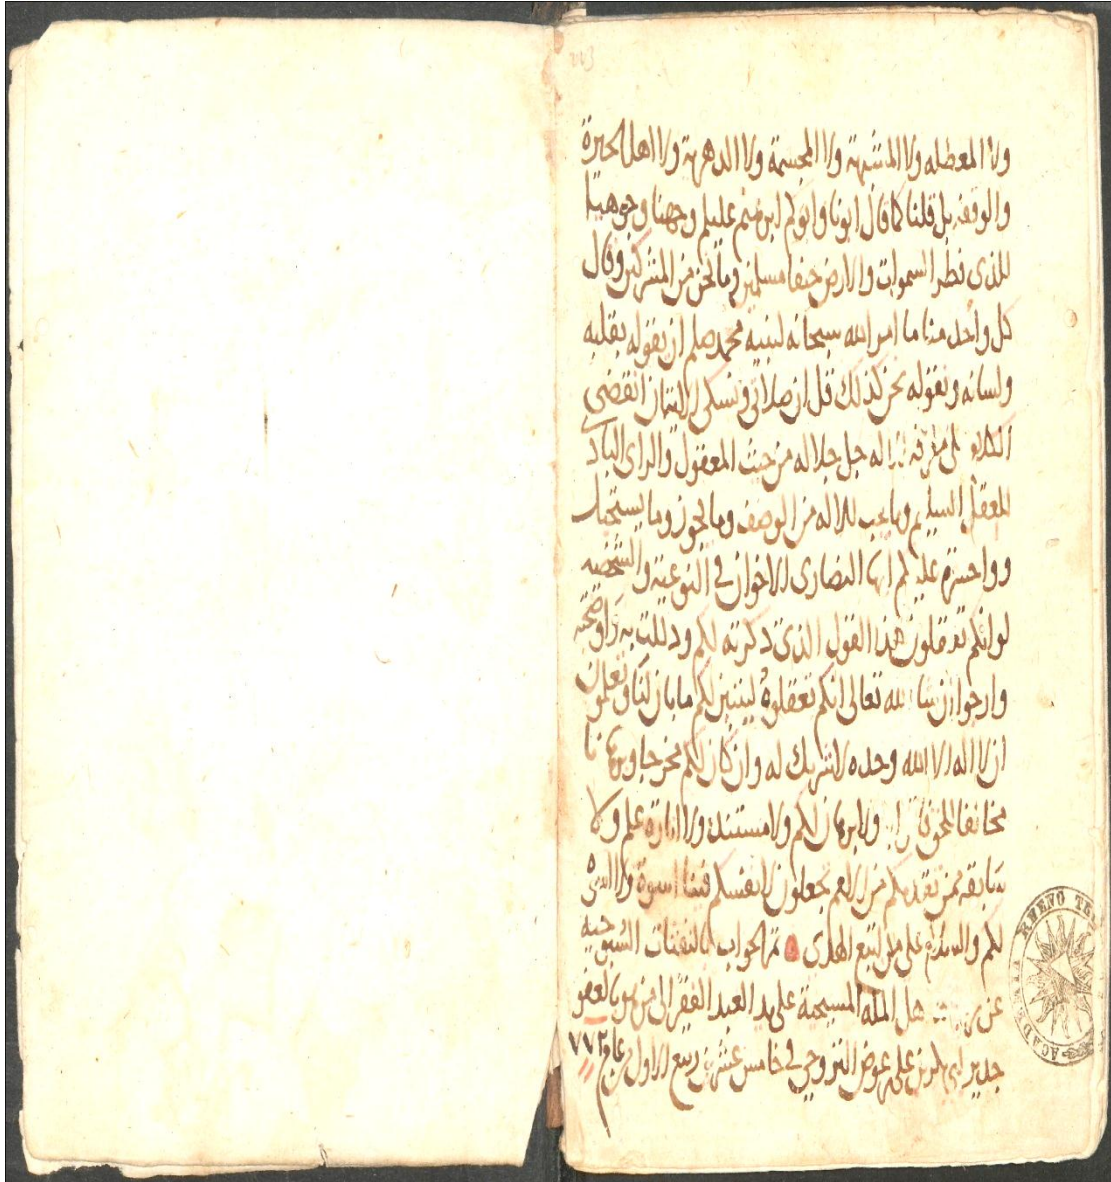 223
ولا المعطله ولا المشبهة ولا المجسمة ولا الدهرية ولا اهل الحيرة
والوقفه بل قلنا كما قال ابونا وابوكم ابرهيم عليلم وجهنا وجوهنا
للذى فطر السموات والارض حنفا مسلمين وما نحن من المشركين وقال
كل واحد منا ما امر الله سبحانه لنبيه محمد صلم ان يقوله بقلبه
ولسانه ونقوله نحن كذلك قل ان صلاتى ونسكى الايتان انقضى
الكلام على معرفة الاله جل جلاله من حيث المعقول والراى الباد
للعقل السليم وما يجب للاله من الوصف وما يجوز وما يستحيل
وواحسرة عليكم ايها النصارى الاخوان فى النوعية والشخصيه
لوانكم تعقلون هذا القول الذى ذكرته لكم ودللت به واوضحته
وارجوا ان شا الله تعالى انكم تعقلوه ليتبين لكم ما بان لنا وتعلمون
ان لا اله الا الله وحده لا شريك له وان كان لكم مخرجا وبرهانا
مخالفا للحق ولا برهان لكم ولا مستند ولا اثارة علم ولا
سابقه ممن تقدمكم من الامم تجعلون لانفسكم فينا اسوة ولا
لكم والسلام على من اتبع الهدى تم الجواب بالنفثات السبوحيه
عن اهل المله المسيحية على يد العبد الفقير الى من هو بالعفو
جدير ابى بكر بن على عوض التروجى فى خامس عشرين ربيع الاول من عام ٧٧٢